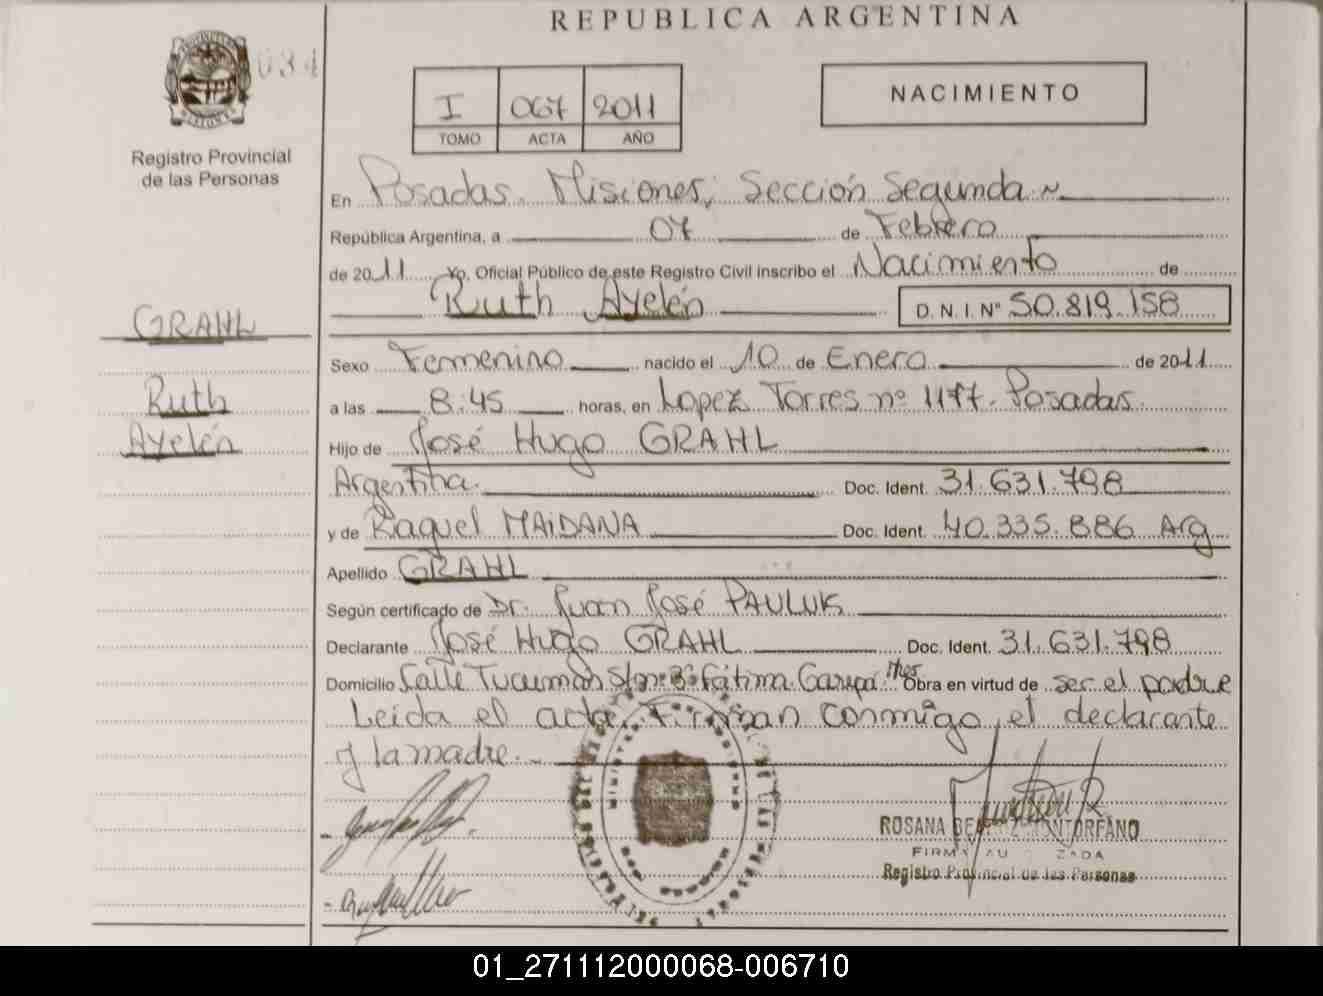 REPUBLICA ARGENTINA
034
Registro Provincial
de las Personas
I 067 2011
TOMO ACTA AÑO
NACIMIENTO
En Posadas. Misiones, Sección Segunda
República Argentina, a 07 de Febrero
de 2011 Yo, Oficial Público de este Registro Civil inscribo el Nacimiento de
Ruth Ayelén D.N.I. Nº 50.819.158
GRAHL
Ruth
Ayelén
Sexo Femenino nacido el 10 de Enero de 2011
a las 8:45 horas, en Lopez Torres nº 1177. Posadas.
Hijo de José Hugo GRAHL
Argentina. Doc. Ident. 31.631.798
y de Raquel MAIDANA Doc. Ident. 40.335.886 Arg
Apellido GRAHL
Según certificado de Dr. Juan José PAULUK
Declarante José Hugo GRAHL Doc. Ident. 31.631.798
Domicilio Calle Tucumán S/nº Bº Fátima Garupá Mnes Obra en virtud de ser el padre
Leída el acta firman conmigo, el declarante
y la madre.
ROSANA MONTORFANO
FIRMA
Registro Provincial de las Personas
01_271112000068-006710